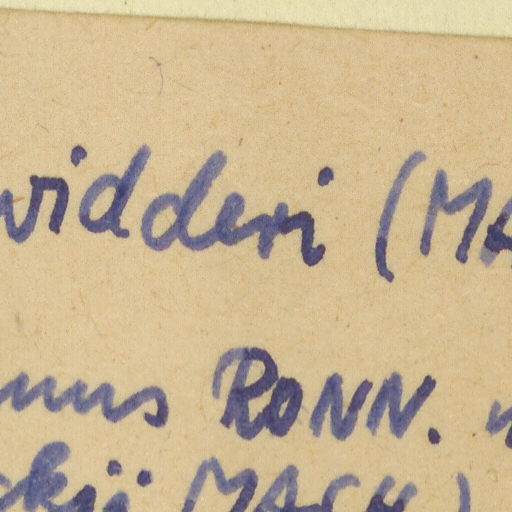 widderi (MA
nus RONN.
skii MACH.)